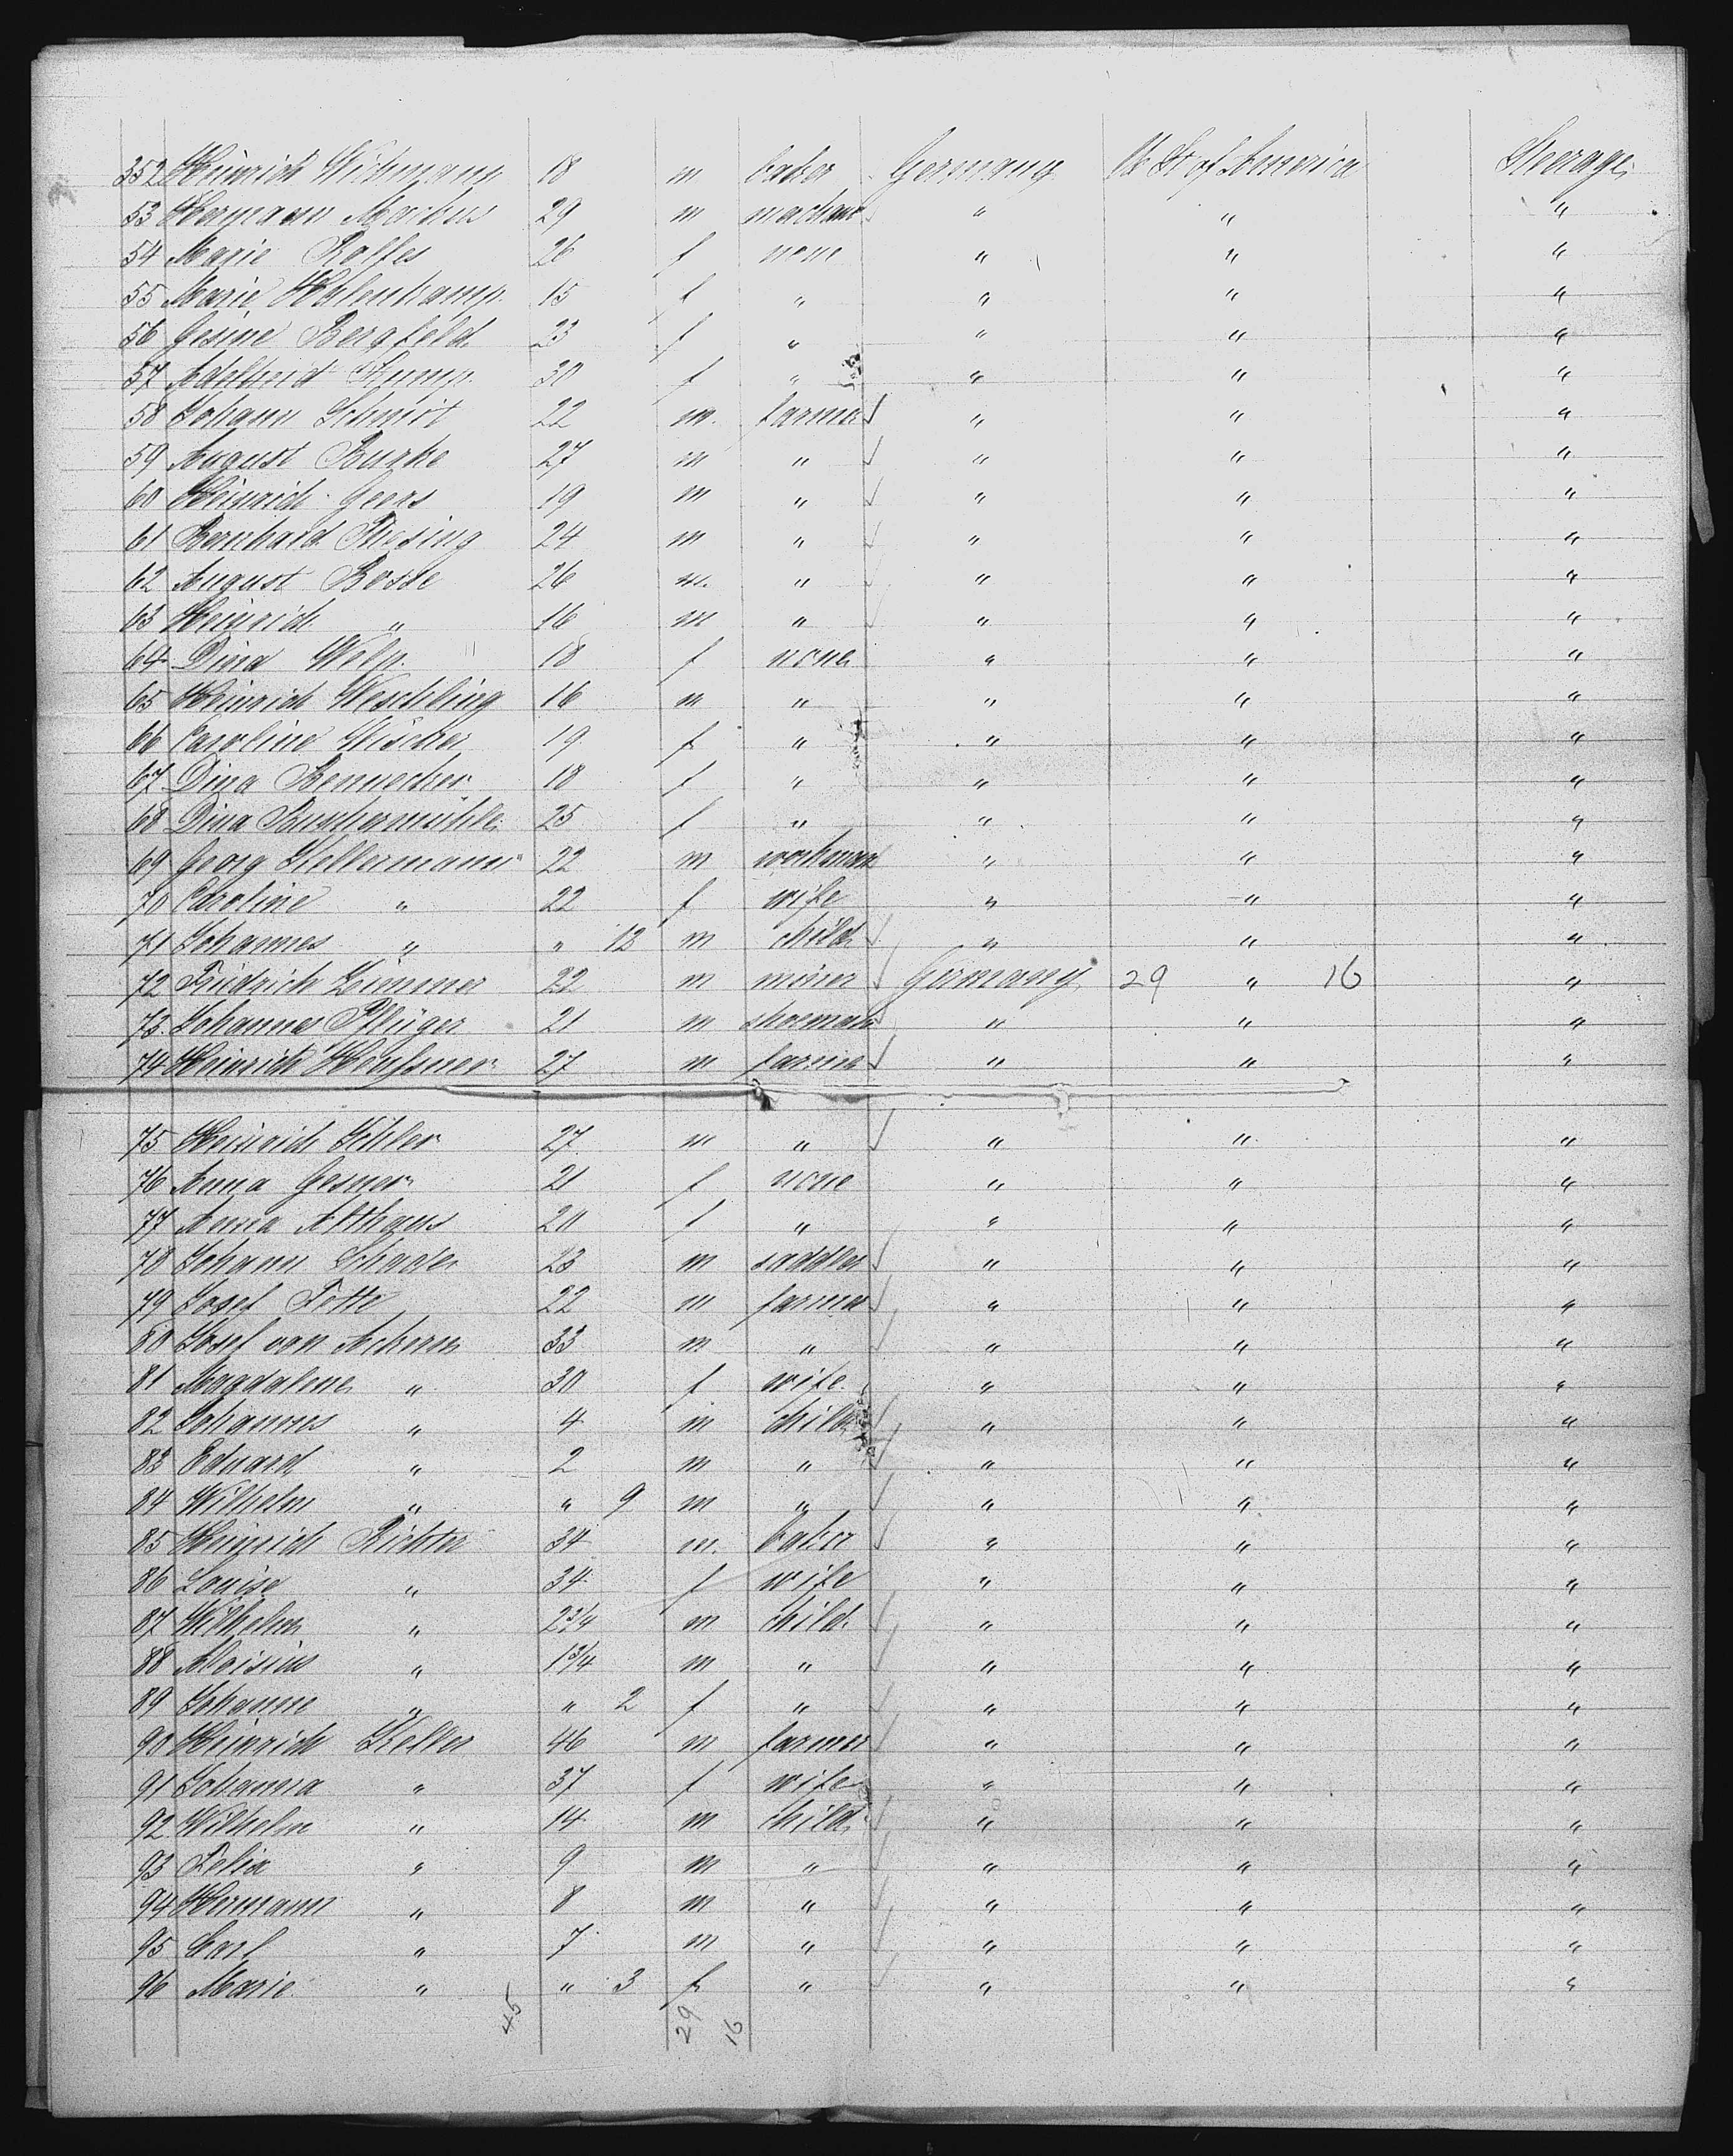 352 Heinrich Wichmann 18 m baker Germany U St of America Steerage
53 Hermann 29 m " " "
54 Marie Rolfes 26 f none " " "
55 Marie Hohenkamp 15 f " " " "
56 Gesine Bergfeld 23 f " " " "
57 Adelheid Stump 30 f " " " "
58 Johann Schmit 22 m farmer " " "
59 August Burke 27 m " " " "
60 Heinrich Geers 19 m " " " "
61 Bernhard 24 m " " " "
62 August Bosse 26 m " " " "
63 Heinrich " 16 m " " " "
64 Dina Welp 18 f none " " "
65 Heinrich Weschling 16 m " " " "
66 Caroline Wischer 19 f " " " "
67 Dina Bennecker 18 f " " " "
68 Dina Buschermühle 25 f " " " "
69 Georg Kellermann 22 m workman " " "
70 Caroline " 22 f wife " " "
71 Johannes " " 12 m child " " "
72 Friedrich Zimmer 22 m miner Germany 29 " 16 "
73 Johannes Pflüger 21 m shoemak " " "
74 Heinrich Heussner 27 m farmer " " "
75 Heinrich Köhler 27 m " " " "
76 Anna Gesner 21 f none " " "
77 Anna Althaus 20 f " " " "
78 Johann Schader 23 m saddler " " "
79 Josef Fette 22 m farmer " " "
80 Josef von Achern 33 m " " " "
81 Magdalene " 30 f wife " " "
82 Johannes " 4 m child " " "
83 Eduard " 2 m " " " "
84 Wilhelm " " 9 m " " " "
85 Heinrich Richter 34 m baker " " "
86 Louise " 34 f wife " " "
87 Wilhelm " 2 3/4 m child " " "
88 Aloisius " 1 3/4 m " " " "
89 Johanne " " 2 f " " " "
90 Heinrich Keller 46 m farmer " " "
91 Johanna " 37 f wife " " "
92 Wilhelm " 14 m child " " "
93 Felix " 9 m " " " "
94 Hermann " 8 m " " " "
95 Carl " 7 m " " " "
96 Marie " " 3 f " " " "
45 29 16